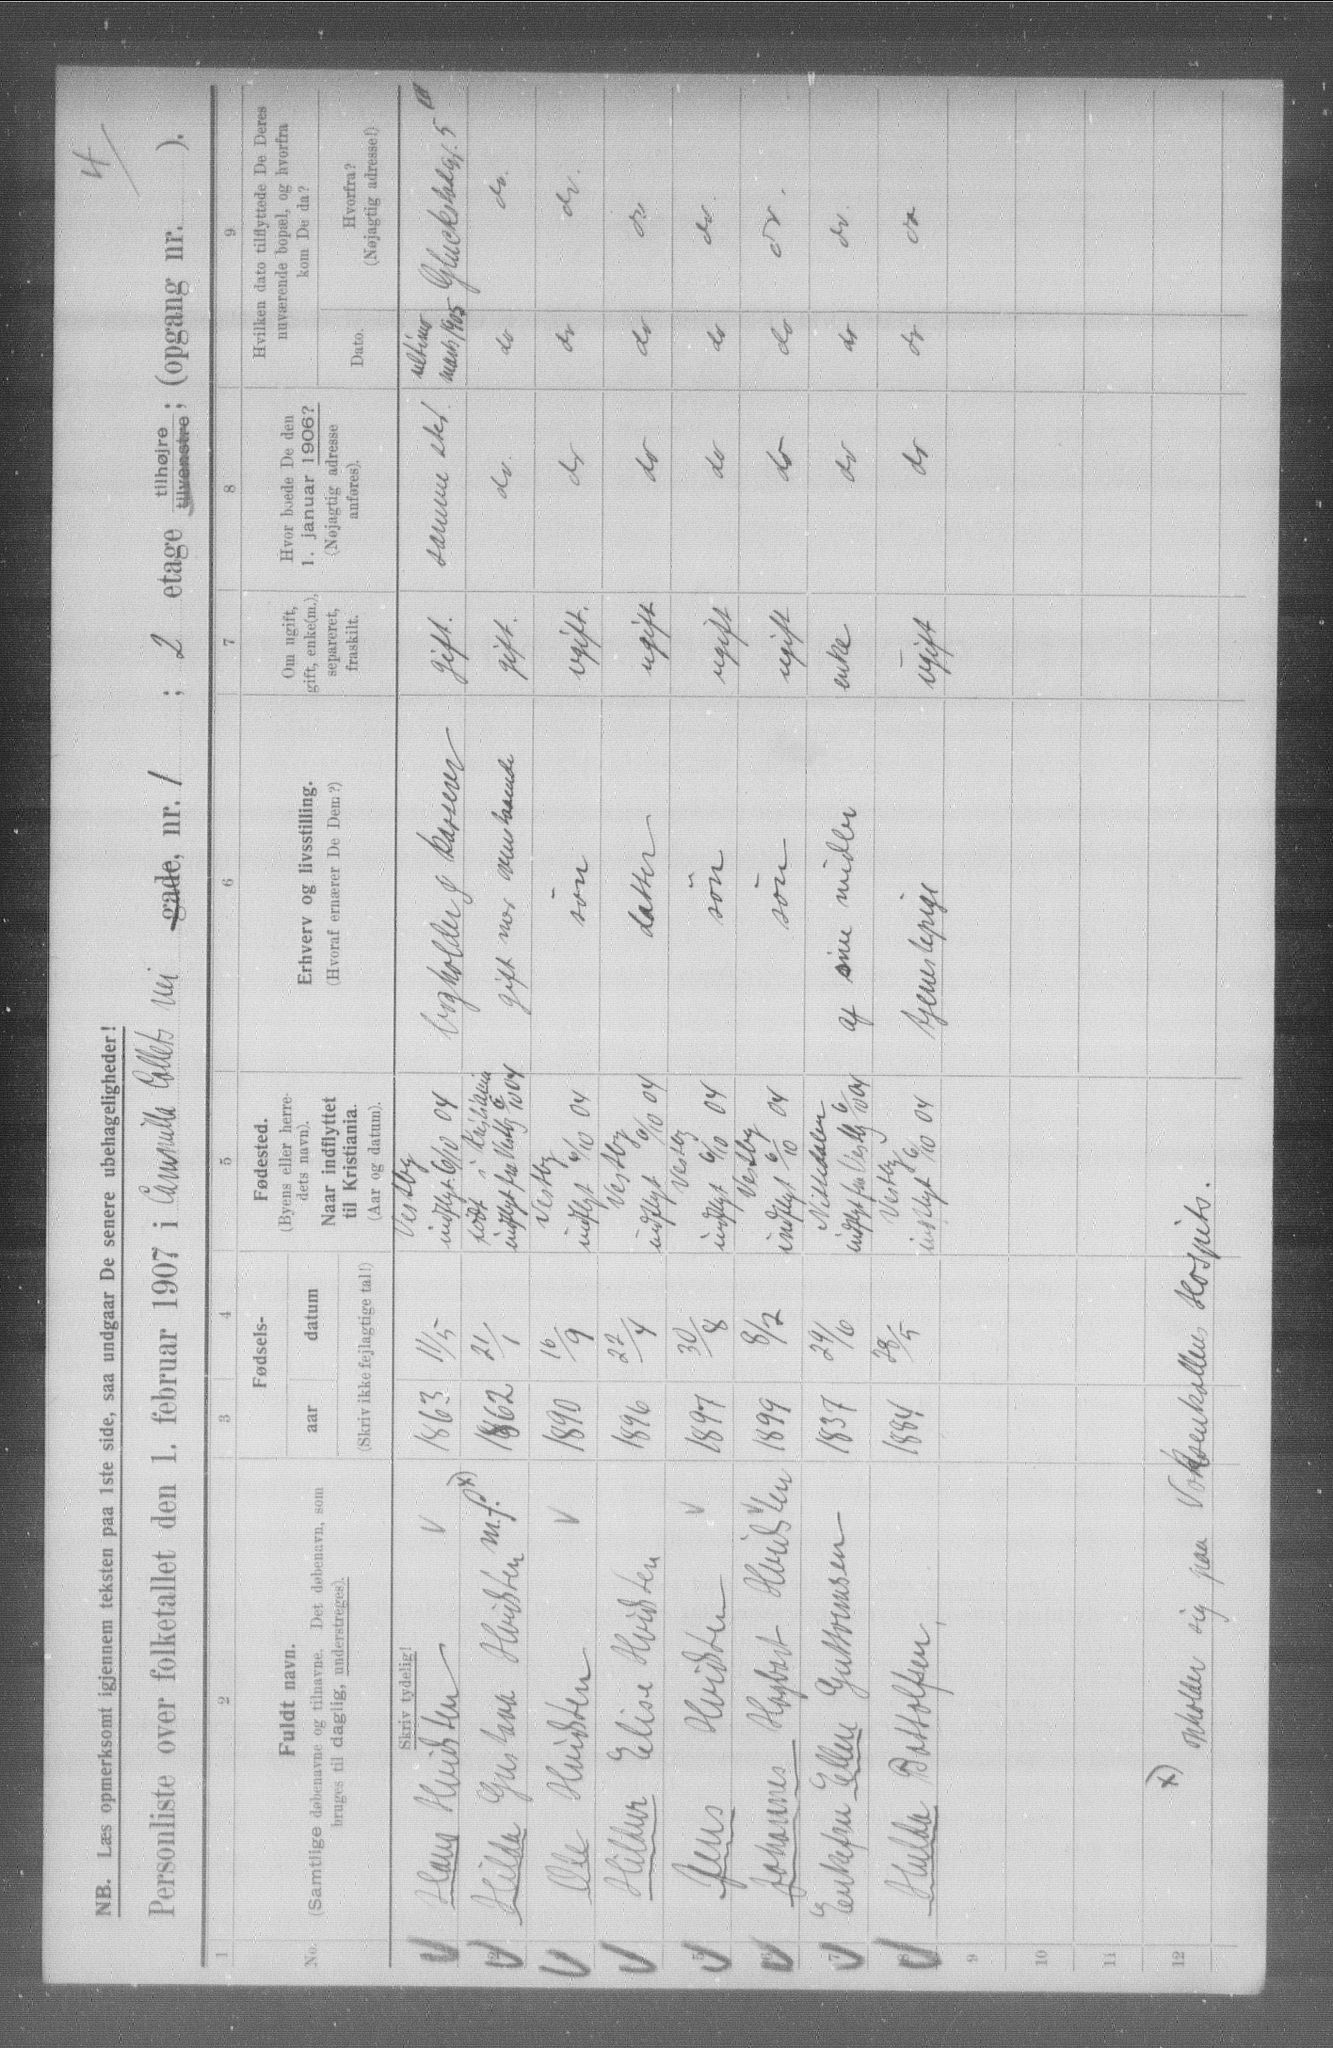 4
NB. Læs opmerksomt igjennem teksten paa 1ste side, saa undgaar De senere ubehageligheder!
Personliste over folketallet den 1. februar 1907 i Camilla Collets Vei gade, nr. 1 ; 2 etage tilhøjre tilvenstre; (opgang nr. ).
1 2 3 4 5 6 7 8 9
No.
Fuldt navn.
(Samtlige døbenavne og tilnavne. Det døbenavn, som
bruges til daglig, understreges).
Fødsels-
aar datum
(Skriv ikke fejlagtige tal!)
Fødested.
(Byens eller herre-
dets navn).
Naar indflyttet
til Kristiania.
(Aar og datum).
Erhverv og livsstilling.
(Hvoraf ernærer De Dem?)
Om ugift,
gift, enke(m.),
separeret,
fraskilt.
Hvor boede De den
1. januar 1906?
(Nøjagtig adresse
anføres).
Hvilken dato tilflyttede De Deres
nuværende bopæl, og hvorfra
kom De da?
Dato.
Hvorfra?
(Nøjagtig adresse!)
Skriv tydelig!
Hans Hvidsten 1863 11/5 Vestby indflyt 6/10 04 bogholder & kasserer gift. samme sted. ultimo marts 1905 5
2 Hilda Gustava Hvidsten m.f. x) 1862 21/1 født i Kristiania indflyt fra Vestby 6/10 04 gift med ovenstaaende gift. do. do do.
Ole Hvidsten 1890 16/9 Vestby indflyt 6/10 04 søn ugift. do do do.
Hildur Elise Hvidsten 1896 22/4 Vestby indflyt 6/10 04 datter ugift do do do
5 Jens Hvidsten 1897 30/8 Vestby indflyt 6/10 04 søn ugift do do do.
6 Johannes Hagbart Hvidsten 1899 8/2 Vestby indflyt 6/10 04 søn ugift do do do.
7 Enkefru Ellen Guttormsen 1837 24/6 Nittedalen indflyt fra Vestby 6/10 04 af sine midler enke do do do.
8 Hulda Bottolfsen 1884 28/5 Vestby indflyt 6/10 04 tjenestepige ugift do do do
9
10
11
12
x) opholder sig paa Voksenkollens Hospits.